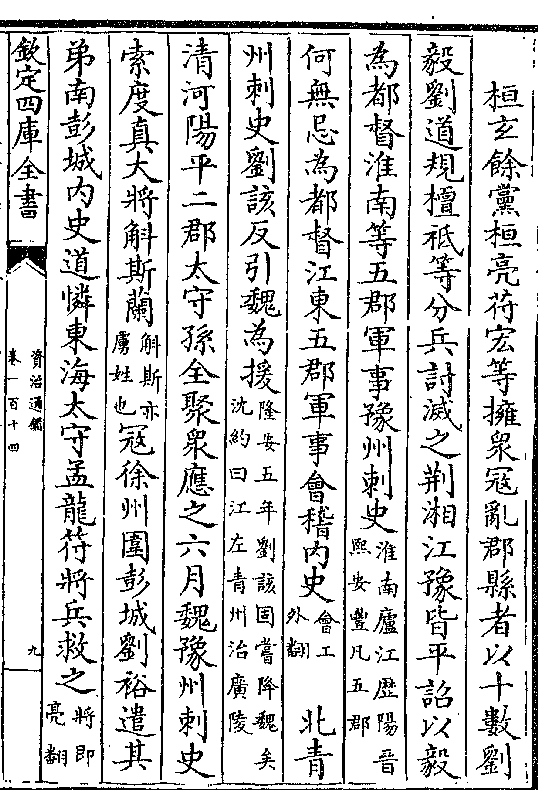 桓玄餘黨桓亮苻宏等擁衆寇亂郡縣者以十數劉
毅劉道規檀祗等分兵討滅之荆湘江豫皆平詔以毅
為都督淮南等五郡軍事豫州刺史淮南廬江歴陽晉熙安豐凡五郡
何無忌為都督江東五郡軍事會稽内史會工外翻北青
州刺史劉該反引魏為援隆安五年劉該固嘗降魏矣沈約曰江左青州治廣陵
清河陽平二郡太守孫全聚衆應之六月魏豫州刺史
索度真大將斛斯蘭斛斯亦虜姓也寇徐州圍彭城劉裕遣其
弟南彭城内史道憐東海太守孟龍符將兵救之將即亮翻
欽定四庫全書
資治通鑑
卷一百十四
九